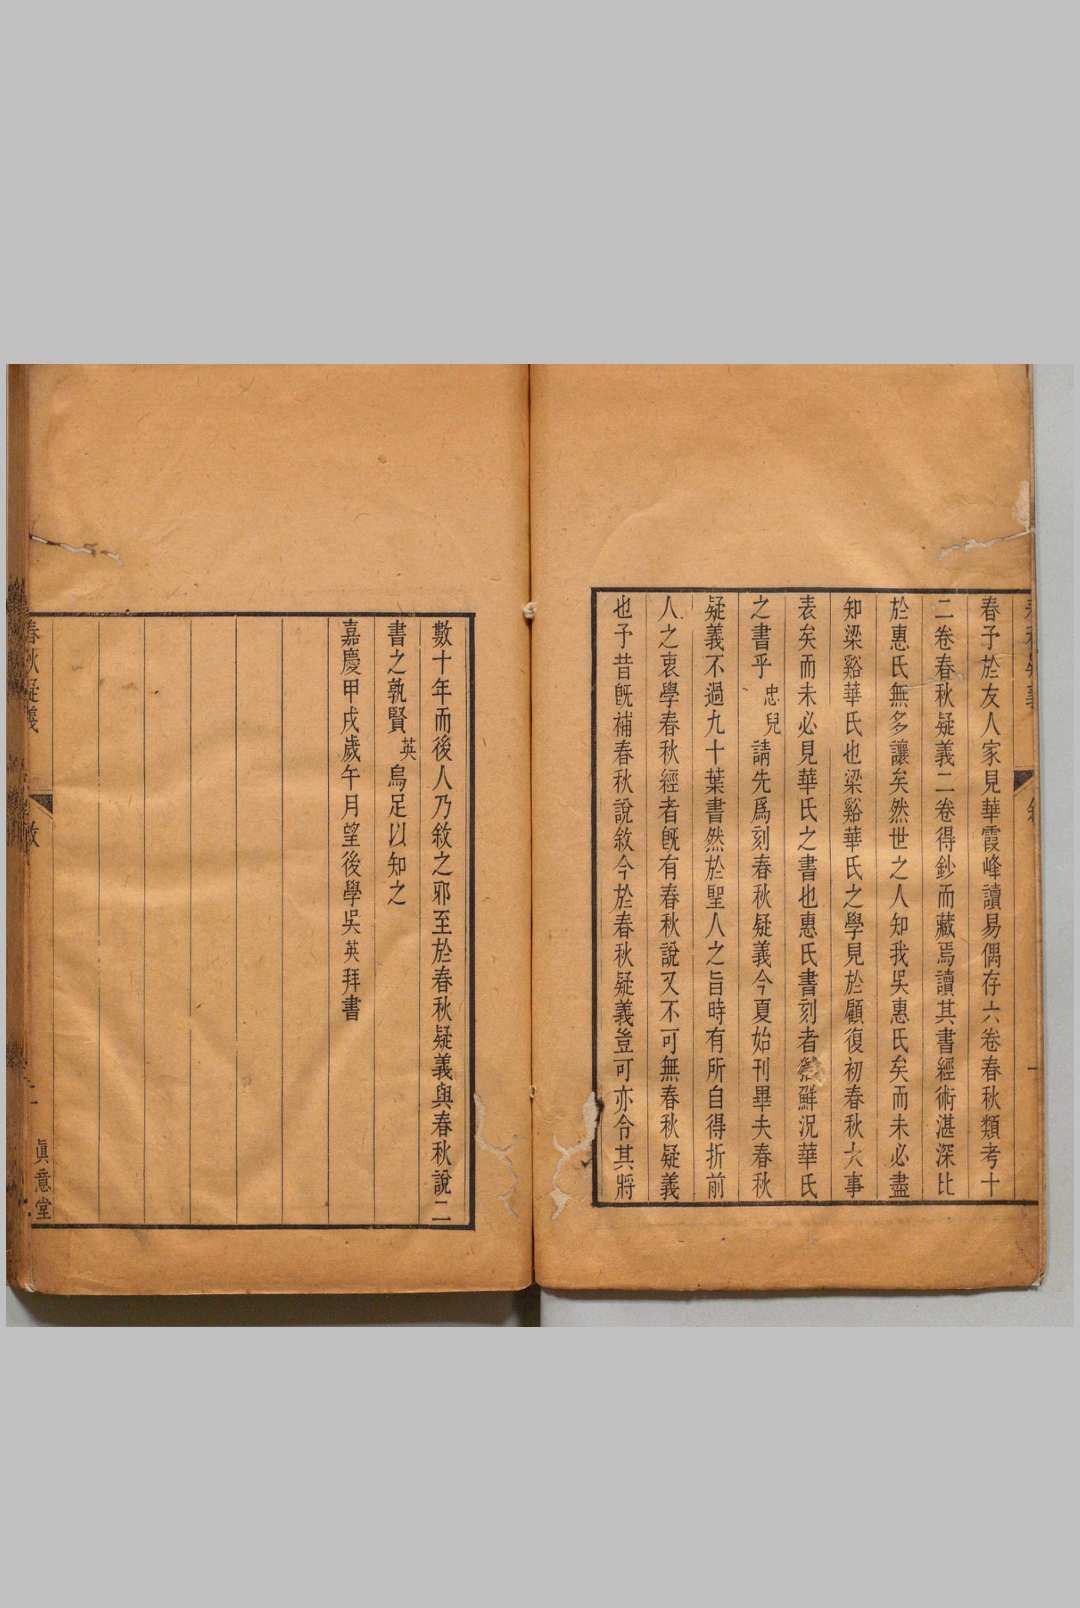 春予於友人家見華霞峰讀易偶存六卷春秋類考十
二卷春秋疑義二卷得鈔而藏焉讀其書經術湛深比
於惠氏無多讓矣然世之人知我吳惠氏矣而未必盡
知梁谿華氏也梁谿華氏之學見於顧復初春秋大事
表矣而未必見華氏之書也惠氏書刻者鮮況華氏
之書乎忠兒請先爲刻春秋疑義今夏始刊畢夫春秋
疑義不過九十葉書然於聖人之旨時有所自得折前
人之衷學春秋經者旣有春秋說又不可無春秋疑義
也予昔旣補春秋說敘今於春秋疑義豈可亦令其將
數十年而後人乃敘之邪至於春秋疑義與春秋說二
書之孰賢英烏足以知之
嘉慶甲戌歲午月望後學吳英拜書
春秋疑義
敘
二
眞意堂